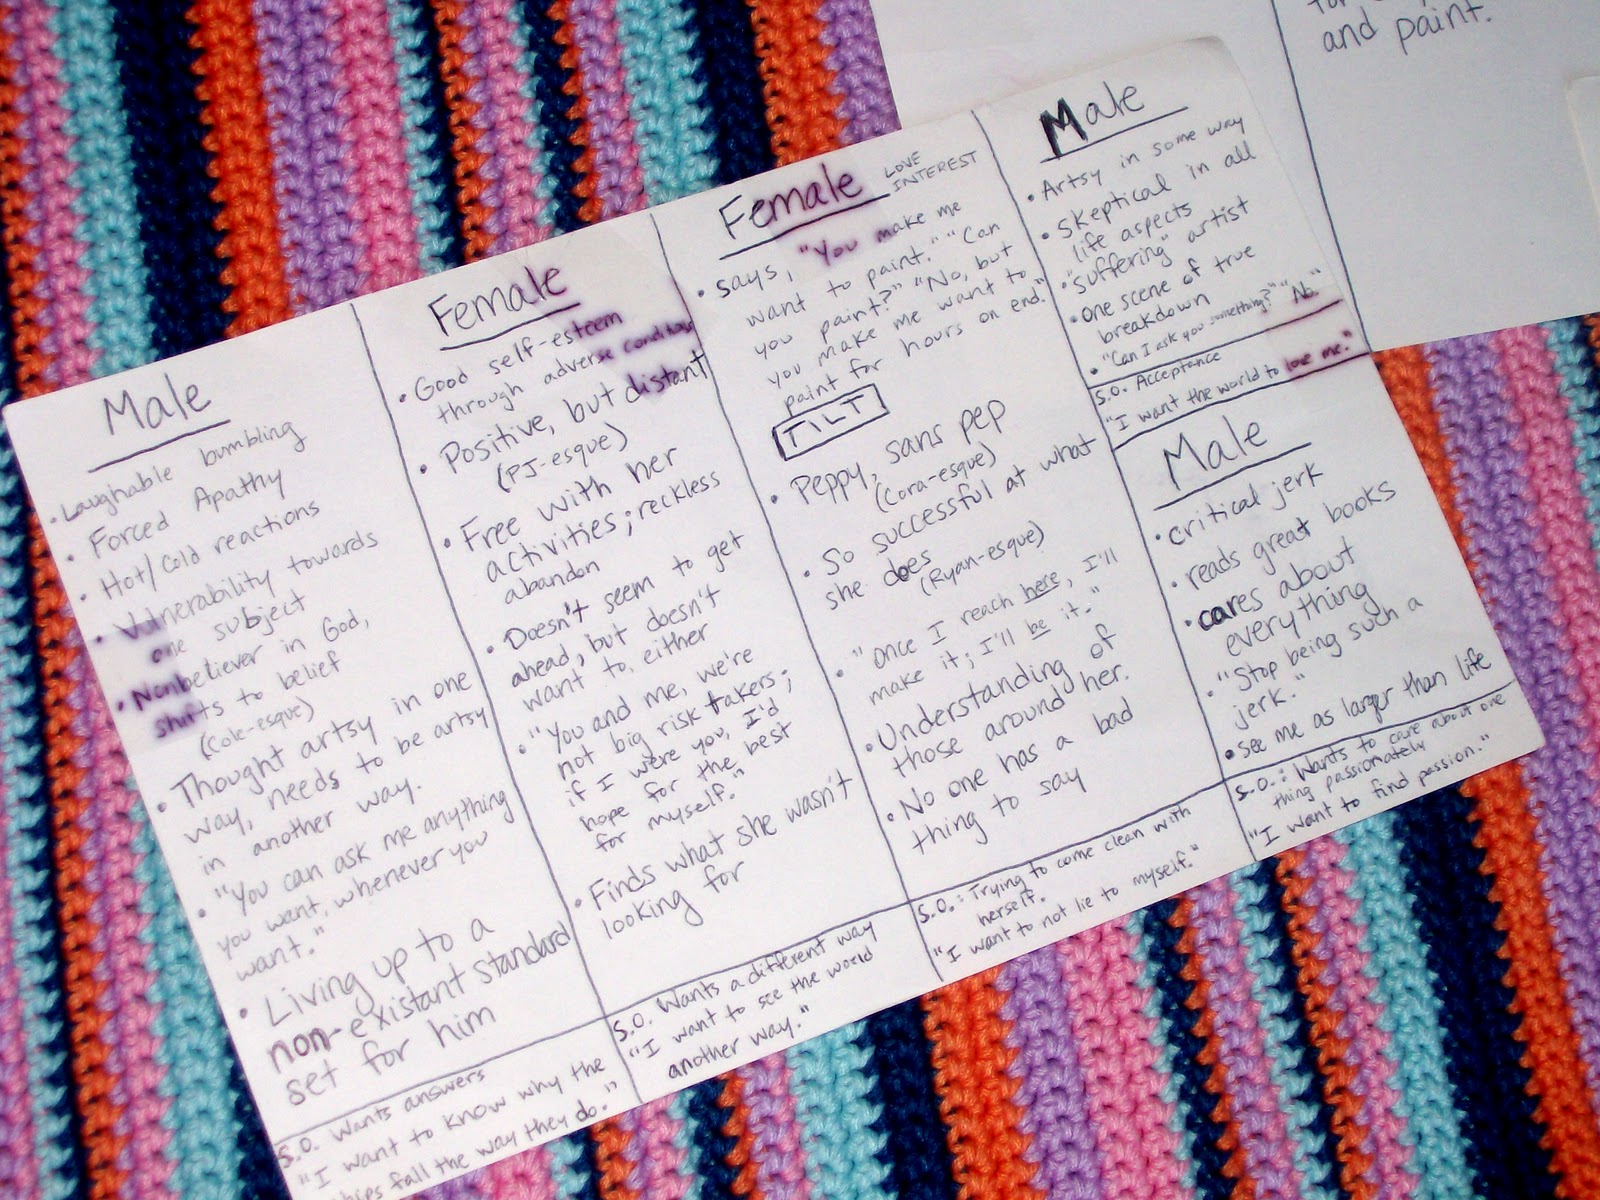 Male
• Laughable bumbling
• Forced Apathy
• Hot/Cold reactions
• Vulnerability towards
one subject
• Nonbeliever in God,
shifts to belief
(Cole-esque)
• Thought artsy in one
way, needs to be artsy
in another way.
• "You can ask me anything
you want, whenever you
want."
• Living up to a
non-existant standard
set for him
S.O. Wants answers
"I want to know why the
chips fall the way they do."
Female
• Good self-esteem
through adverse conditions
• Positive, but distant
(PJ-esque)
• Free with her
activities; reckless
abandon
• Doesn't seem to get
ahead, but doesn't
want to, either
• "You and me, we're
not big risk takers;
if I were you, I'd
hope for the best
for myself."
• Finds what she wasn't
looking for
S.O. Wants a different way
"I want to see the world
another way."
Female LOVE
INTEREST
• says, "You make me
want to paint." "Can
you paint?" "No, but
you make me want to
paint for hours on end."
TILT
• Peppy, sans pep
(Cora-esque)
• So successful at what
she does
(Ryan-esque)
• "Once I reach here, I'll
make it; I'll be it."
• Understanding of
those around her.
• No one has a bad
thing to say
S.O.: Trying to come clean with
herself.
"I want to not lie to myself."
Male
• Artsy in some way
• Skeptical in all
life aspects
• "suffering" artist
• one scene of true
breakdown
• "Can I ask you something?" "No."
S.O. Acceptance
"I want the world to love me."
Male
• critical jerk
• reads great books
• cares about
everything
• "Stop being such a
jerk."
• see me as larger than life
S.O.: Wants to care about one
thing passionately
"I want to find passion."
and paint.